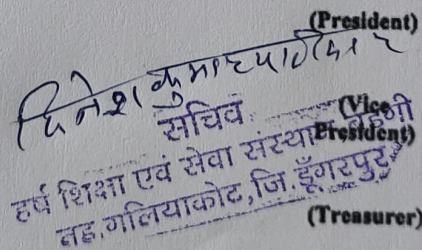 (President)
दिनेश कुमार पाटीदार
सचिव
(Vice President)
हर्ष शिक्षा एवं सेवा संस्थान
तह.गलियाकोट,जि.डूँगरपुर
(Treasurer)